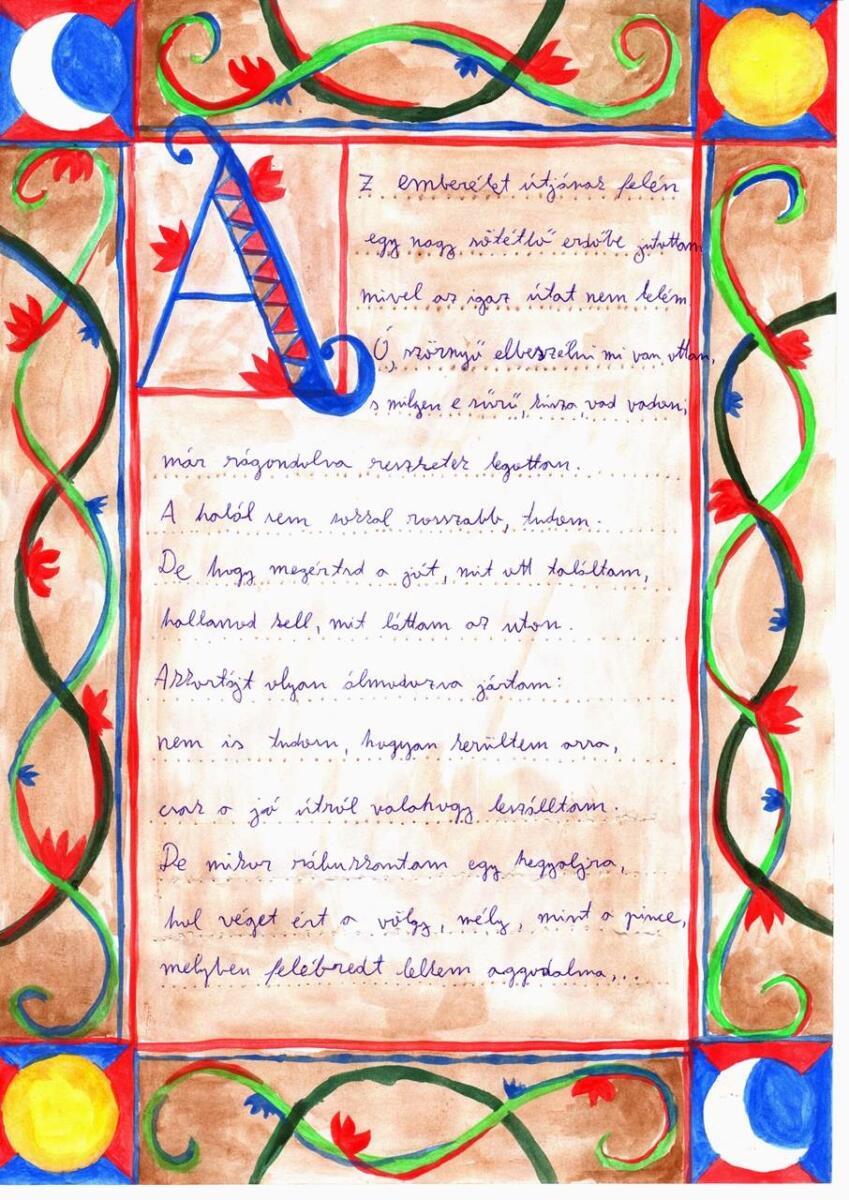 Az emberélet útjának felén
egy nagy sötétlő erdőbe jutottam
mivel az igaz útat nem lelém
Ó, szörnyű elbeszélni mi van ottan,
s milyen e sűrű, kúsza, vad vadon;
már rágondolva reszketek legottan.
A halál sem sokkal rosszabb, tudom.
De hogy megértsd a jót, mit ott találtam,
hallanod kell, mit láttam az uton.
Akkortájt olyan álmodozva jártam:
nem is tudom, hogyan kerültem arra,
csak a jó útról valahogy leszálltam.
De mikor rábukkantam egy hegyaljra,
hol véget ért a völgy, mély, mint a pince,
melyben felébredt lelkem aggodalma,..